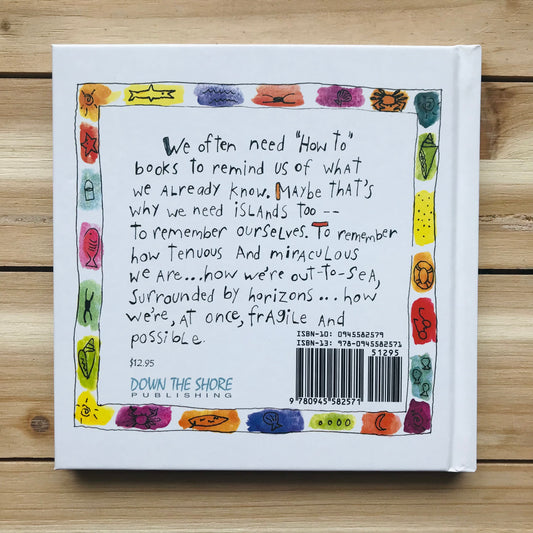 We often need "How to"
books to remind us of what
we already know. Maybe that's
why we need islands too --
to remember ourselves. To remember
how tenuous and miraculous
we are...how we're out-to-sea,
surrounded by horizons...how
we're, at once, fragile and
possible.
ISBN-10: 0945582579
ISBN-13: 978-0945582571
51295
$12.95
DOWN THE SHORE
PUBLISHING
9 780945 582571